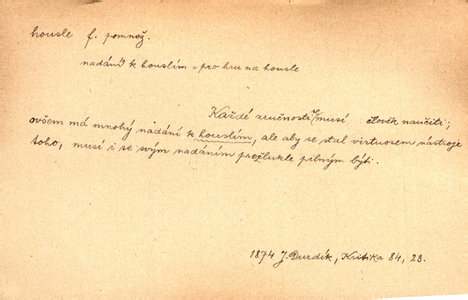 housle f. pomnož.
nadání k houslím = pro hru na housle
Každé zručnosti musí člověk naučiti;
ovšem má mnohý nadání k houslím, ale aby se stal virtuosem nástroje
toho, musí i se svým nadáním prožlukle pilným býti.
1874 J. Durdík, Kritika 84, 23.